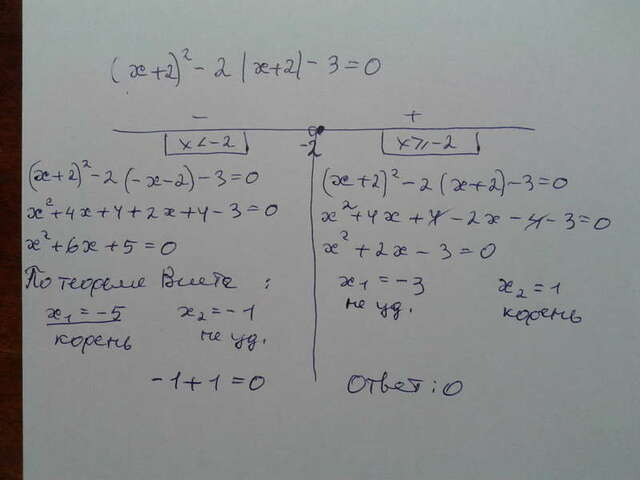 (x+2)² - 2 |x+2| - 3 = 0
- +
x < -2 -2 x ⩾ -2
(x+2)² - 2 (-x-2) - 3 = 0
x² + 4x + 4 + 2x + 4 - 3 = 0
x² + 6x + 5 = 0
По теореме Виета :
x₁ = -5 x₂ = -1
корень не уд.
-1 + 1 = 0
(x+2)² - 2 (x+2) - 3 = 0
x² + 4x + 4 - 2x - 4 - 3 = 0
x² + 2x - 3 = 0
x₁ = -3 x₂ = 1
не уд. корень
Ответ: 0